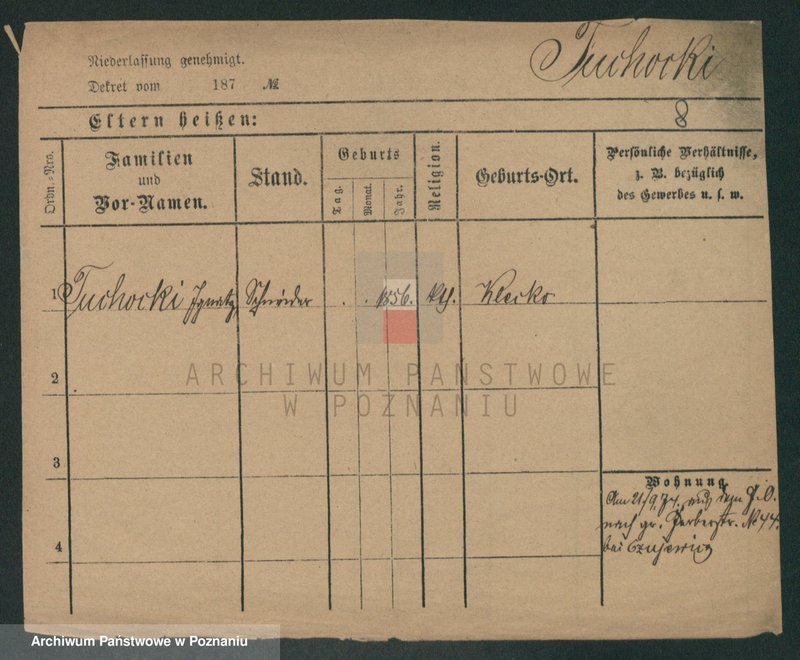 Niederlassung genehmigt.
Dekret vom 187 №
Tuchocki
8
Eltern heißen:
Ordn.-Nrs.
Familien
und
Vor-Namen.
Stand.
Geburts
Tag.
Monat.
Jahr.
Religion.
Geburts-Ort.
Persönliche Verhältnisse,
z. B. bezüglich
des Gewerbes u. s. w.
1 Tuchocki Ignatz Schneider . . 1856. kth. Klecko
ARCHIWUM PAŃSTWOWE
W POZNANIU
2
3
4
Wohnung
Am 21/9.74. aus dem G. O.
nach gr. Gerberstr. № 44.
bei Czujewicz
Archiwum Państwowe w Poznaniu